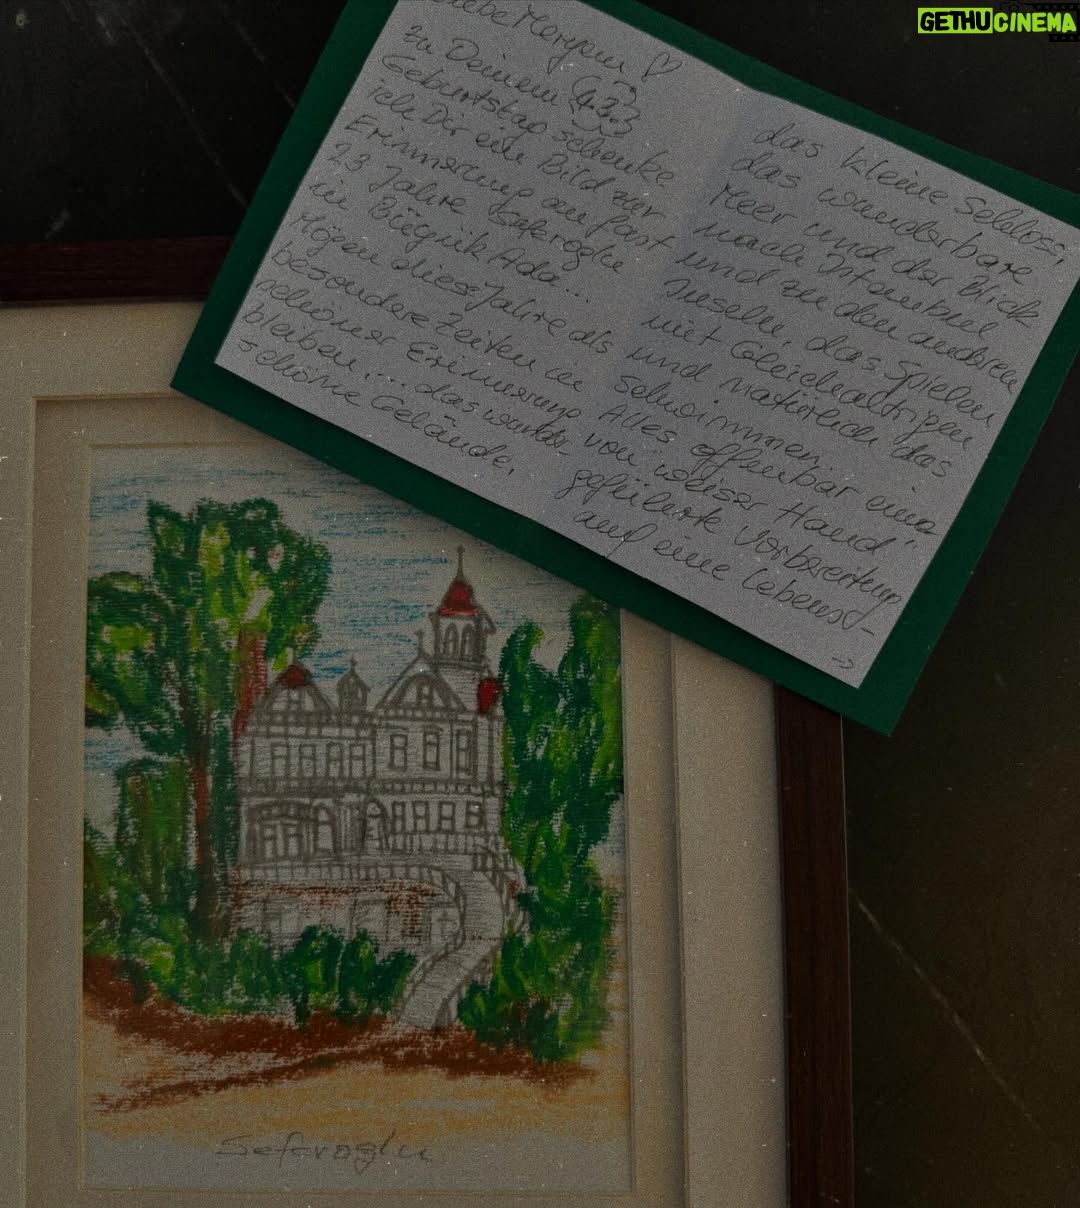 GETHUCINEMA
Liebe Meryem ♡
zu Deinem 43.
Geburtstag schenke
ich Dir ein Bild zur
Erinnerung an fast
23 Jahre Seferoglu
in Büyük Ada...
Mögen diese Jahre als
besondere Zeiten in
schöner Erinnerung
bleiben,... das wunder-
schöne Gelände,
das kleine Schloss,
das wunderbare
Meer und der Blick
nach Istanbul
und zu den anderen
Inseln, das Spielen
mit Gleichaltrigen
und natürlich das
Schwimmen.
Alles offenbar eine
von weiser Hand"
geführte Vorbereitung
auf eine Lebens-
->
Seferoglu